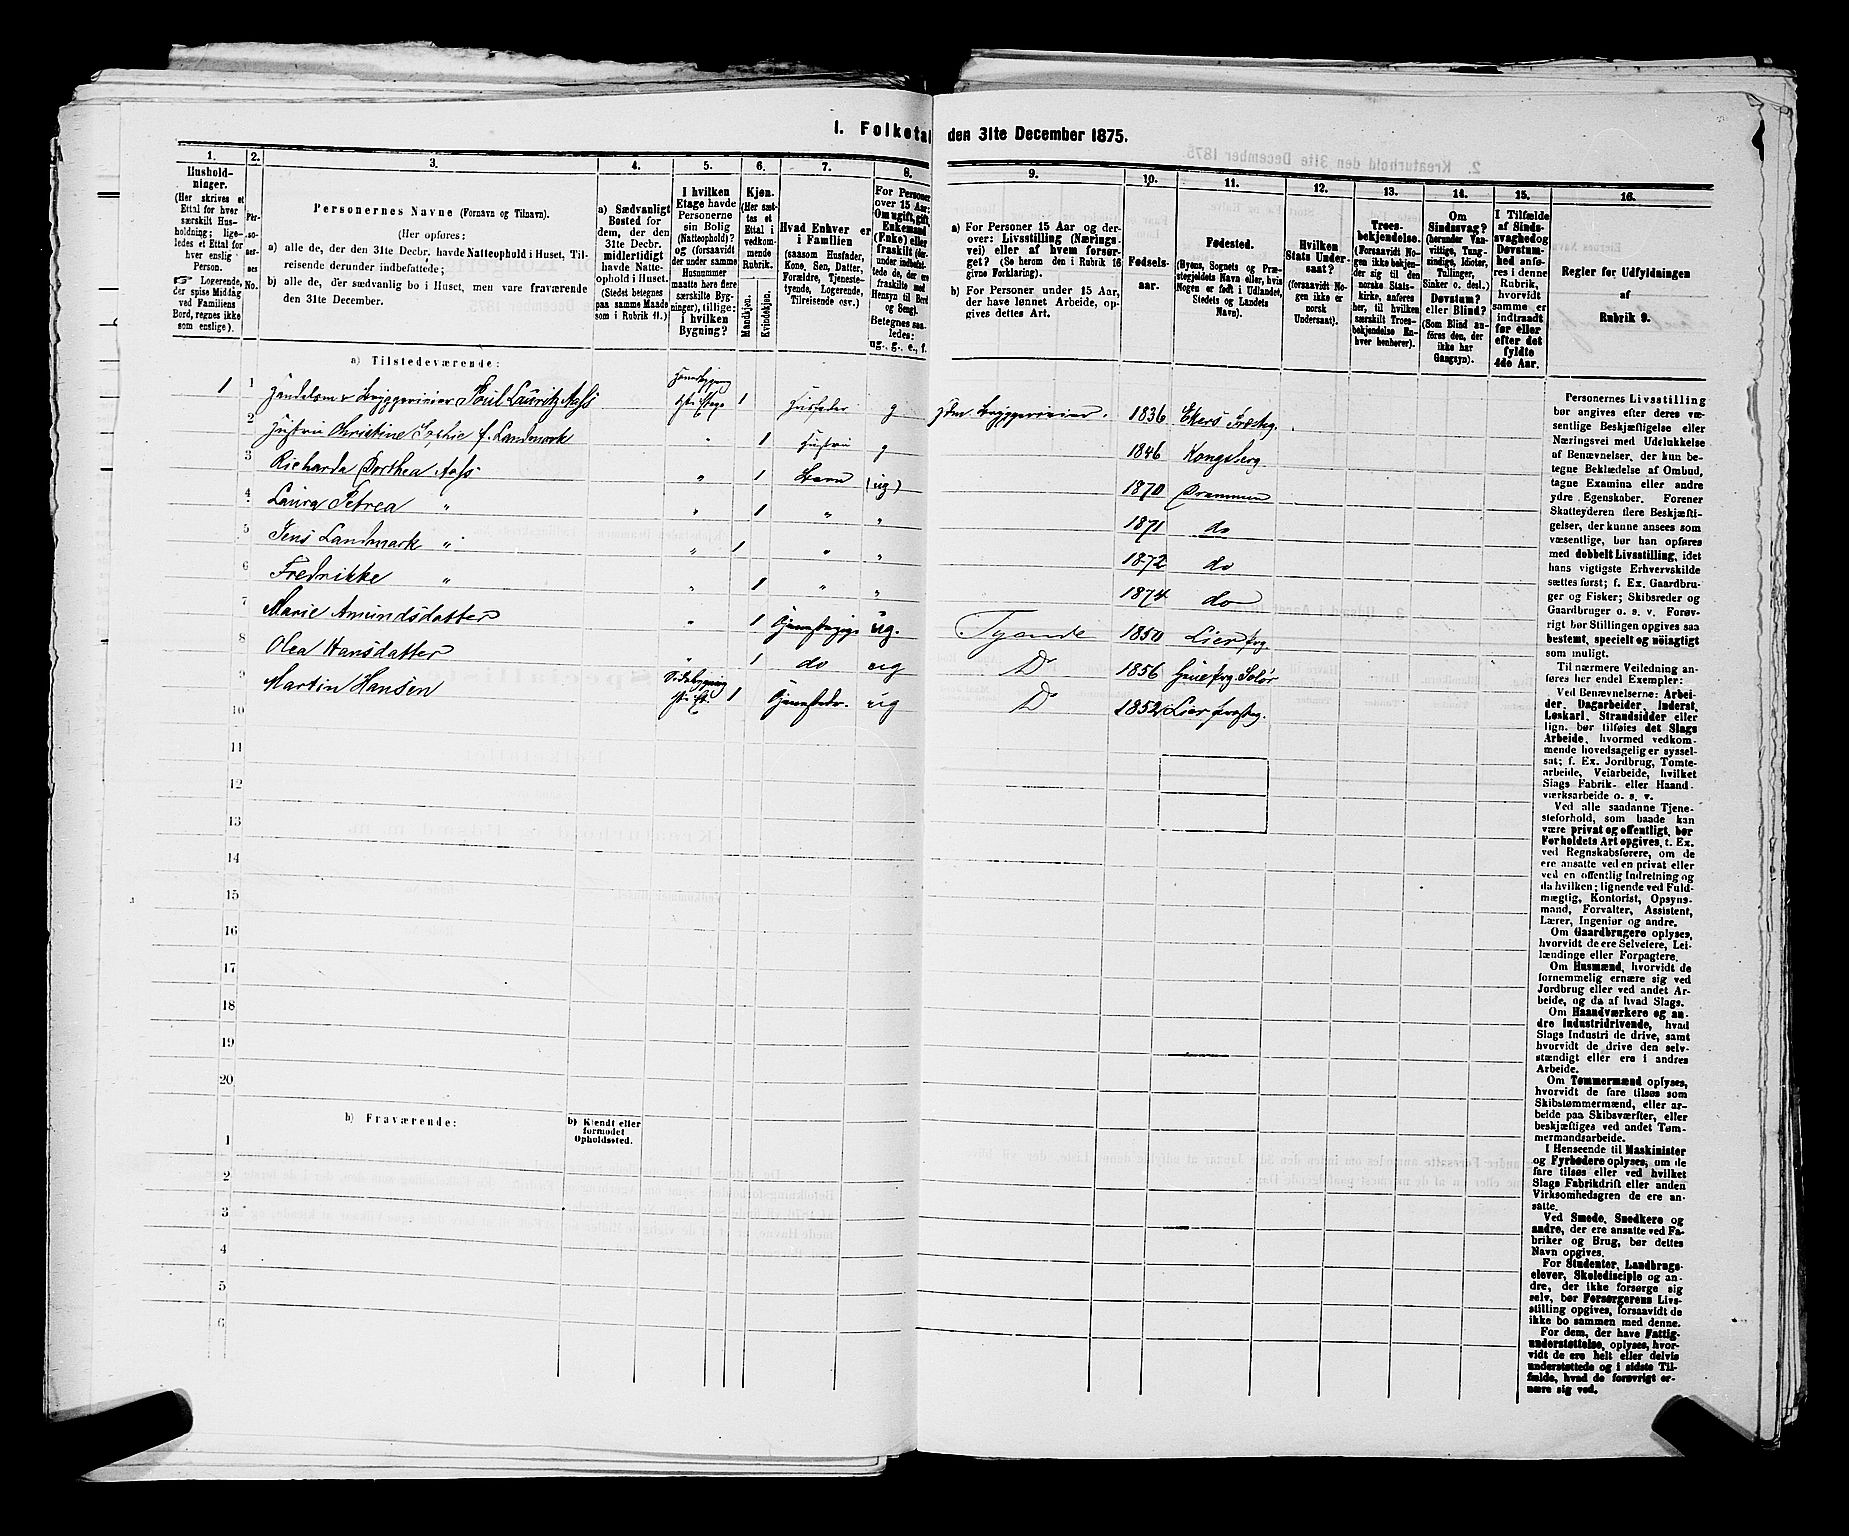 1. Folketal den 31te December 1875.
1.
Hushold-
ninger.
(Her skrives et
Ettal for hver
særskilt Hus-
holdning; lige-
ledes et Ettal for
hver enslig
Person.
☞ Logerende,
der spise Middag
ved Familiens
Bord, regnes ikke
som enslige).
2.
Per-
so-
ner-
nes
No.
3.
Personernes Navne (Fornavn og Tilnavn).
(Her opføres:
a) alle de, der den 31te Decbr. havde Natteophold i Huset, Til-
reisende derunder indbefattede;
b) alle de, der sædvanlig bo i Huset, men vare fraværende
den 31te December.
4.
a) Sædvanligt
Bosted for
dem, der den
31te Decbr.
midlertidigt
havde Natte-
ophold i Huset.
(Stedet betegnes
paa samme Maade
som i Rubrik 11.)
5.
I hvilken
Etage havde
Personerne
sin Bolig
(Natteophold)?
og (forsaavidt
der under samme
Husnummer
maatte høre flere
særskilte Byg-
ninger), tillige:
i hvilken
Bygning?
6.
Kjøn.
(Her sæt-
tes et
Ettal i
vedkom-
mende
Rubrik.
Mandkjøn.
Kvindekjøn.
7.
Hvad Enhver er
i Familien
(saasom Husfader,
Kone, Søn, Datter,
Forældre, Tjeneste-
tyende, Logerende,
Tilreisende osv.)
8.
For Personer
over 15 Aar:
Om ugift, gift,
Enkemand
(Enke) eller
fraskilt
Betegnes saa-
ledes:
ug., g., e., f.
9.
a) For Personer 15 Aar og der-
over: Livsstilling (Nærings-
vei) eller af hvem forsør-
get? (Se herom den i Rubrik 16
givne Forklaring).
b) For Personer under 15 Aar,
der have lønnet Arbeide, op-
gives dettes Art.
10.
Fødsels-
aar.
11.
Fødested.
(Byens, Sognets og Præ-
stegjeldets Navn eller, hvis
Nogen er født i Udlandet,
Stedets og Landets
Navn).
12.
Hvilken
Stats Under-
saat?
(forsaavidt No-
gen ikke er
norsk
Undersaat).
13.
Troes-
bekjendelse.
(Forsaavidt No-
gen ikke bekjen-
der sig til den
norske Stats-
kirke, anføres
her, til hvilken
særskilt Troes-
bekjendelse En-
hver henhører).
14.
Om
Sindssvag?
(herunder Van-
vittige, Tung-
sindige, Idioter,
Tullinger,
Sinker o. desl.)
Døvstum?
eller Blind?
(Som Blind an-
føres den, der
ikke har
Gangsyn).
15.
I Tilfælde
af Sinds-
svaghed og
Døvstum-
hed anfø-
res i denne
Rubrik,
hvorvidt
samme er
indtraadt
før eller
efter det
fyldte
4de Aar.
16.
Regler for Udfyldningen
af
Rubrik 9.
a) Tilstedeværende:
1 1 Poul Lauritz Aass 1 Husfader g 1836
2 Hustru Christine Sophie f. Landmark " 1 Hustru g 1846 Kongsberg
3 Richarda Dorthea Aass " 1 Barn (ug) 1870 Drammen
4 Laura Petrea " " 1 " " 1871 do
5 Jens Landmark " " 1 " " 1872 do
6 Fredrikke " " 1 " " 1874 do
7 Marie Amundsdatter " 1 ug. Tyende 1850 Lier prg.
8 Olea Hansdatter " 1 do ug Do 1856
9 Martin Hansen 1 ug Do 1852 Lier
10
11
12
13
14
15
16
17
18
19
20
b) Fraværende:
b) Kjendt eller
formodet
Opholdssted.
1
2
3
4
5
6
Personernes Livsstilling
bør angives efter deres væ-
sentlige Beskjæftigelse eller
Næringsvei med Udelukkelse
af Benævnelser, der kun be-
tegne Beklædelse af Ombud,
tagne Examina eller andre
ydre Egenskaber. Forener
Skatteyderen flere Beskjæfti-
gelser, der kunne ansees som
væsentlige, bør han opføres
med dobbelt Livsstilling, idet
hans vigtigste Erhvervskilde
sættes først; f. Ex. Gaardbru-
ger og Fisker; Skibsreder og
Gaardbruger o. s. v. Forøv-
rigt bør Stillingen opgives saa
bestemt, specielt og nøiagtigt
som muligt.
Til nærmere Veiledning an-
føres her endel Exempler:
Ved Benævnelserne: Arbei-
der, Dagarbeider, Inderst,
Løskarl, Strandsidder eller
lign. bør tilføies det Slags
Arbeide, hvormed vedkom-
mende hovedsagelig er syssel-
sat; f. Ex. Jordbrug, Tomte-
arbeide, Veiarbeide, hvilket
Slags Fabrik- eller Haand-
værksarbeide o. s. v.
Ved alle saadanne Tjene-
steforhold, som baade kan
være privat og offentligt, bør
Forholdets Art opgives, t. Ex.
ved Regnskabsførere, om de
ere ansatte ved en privat eller
ved en offentlig Indretning og
da hvilken; lignende ved Fuld-
mægtig, Kontorist, Opsyns-
mand, Forvalter, Assistent,
Lærer, Ingeniør og andre.
Om Gaardbrugere oplyses,
hvorvidt de ere Selveiere, Lei-
lændinge eller Forpagtere.
Om Husmænd, hvorvidt de
fornemmelig ernære sig ved
Jordbrug eller ved andet Ar-
beide, og da af hvad Slags.
Om Haandværkere og an-
dre Industridrivende, hvad
Slags Industri de drive, samt
hvorvidt de drive den selv-
stændigt eller ere i andres
Arbeide.
Om Tømmermænd oplyses,
hvorvidt de fare tilsøs som
Skibstømmermænd, eller ar-
beide paa Skibsværfter, eller
beskjæftiges ved andet Tøm-
mermandsarbeide.
I Henseende til Maskinister
og Fyrbødere oplyses, om de
fare tilsøs eller ved hvilket
Slags Fabrikdrift eller anden
Virksomhedsgren de ere an-
satte.
Ved Smede, Snedkere og
andre, der ere ansatte ved Fa-
briker og Brug, bør dettes
Navn opgives.
For Studenter, Landbrugs-
elever, Skoledisciple og an-
dre, der ikke forsørge sig
selv, bør Forsørgerens Livs-
stilling opgives, forsaavidt de
ikke bo sammen med denne.
For dem, der have Fattig-
understøttelse, oplyses, hvor-
vidt de ere helt eller delvis
understøttede og i sidste Til-
fælde, hvad de forøvrigt er-
nære sig ved.